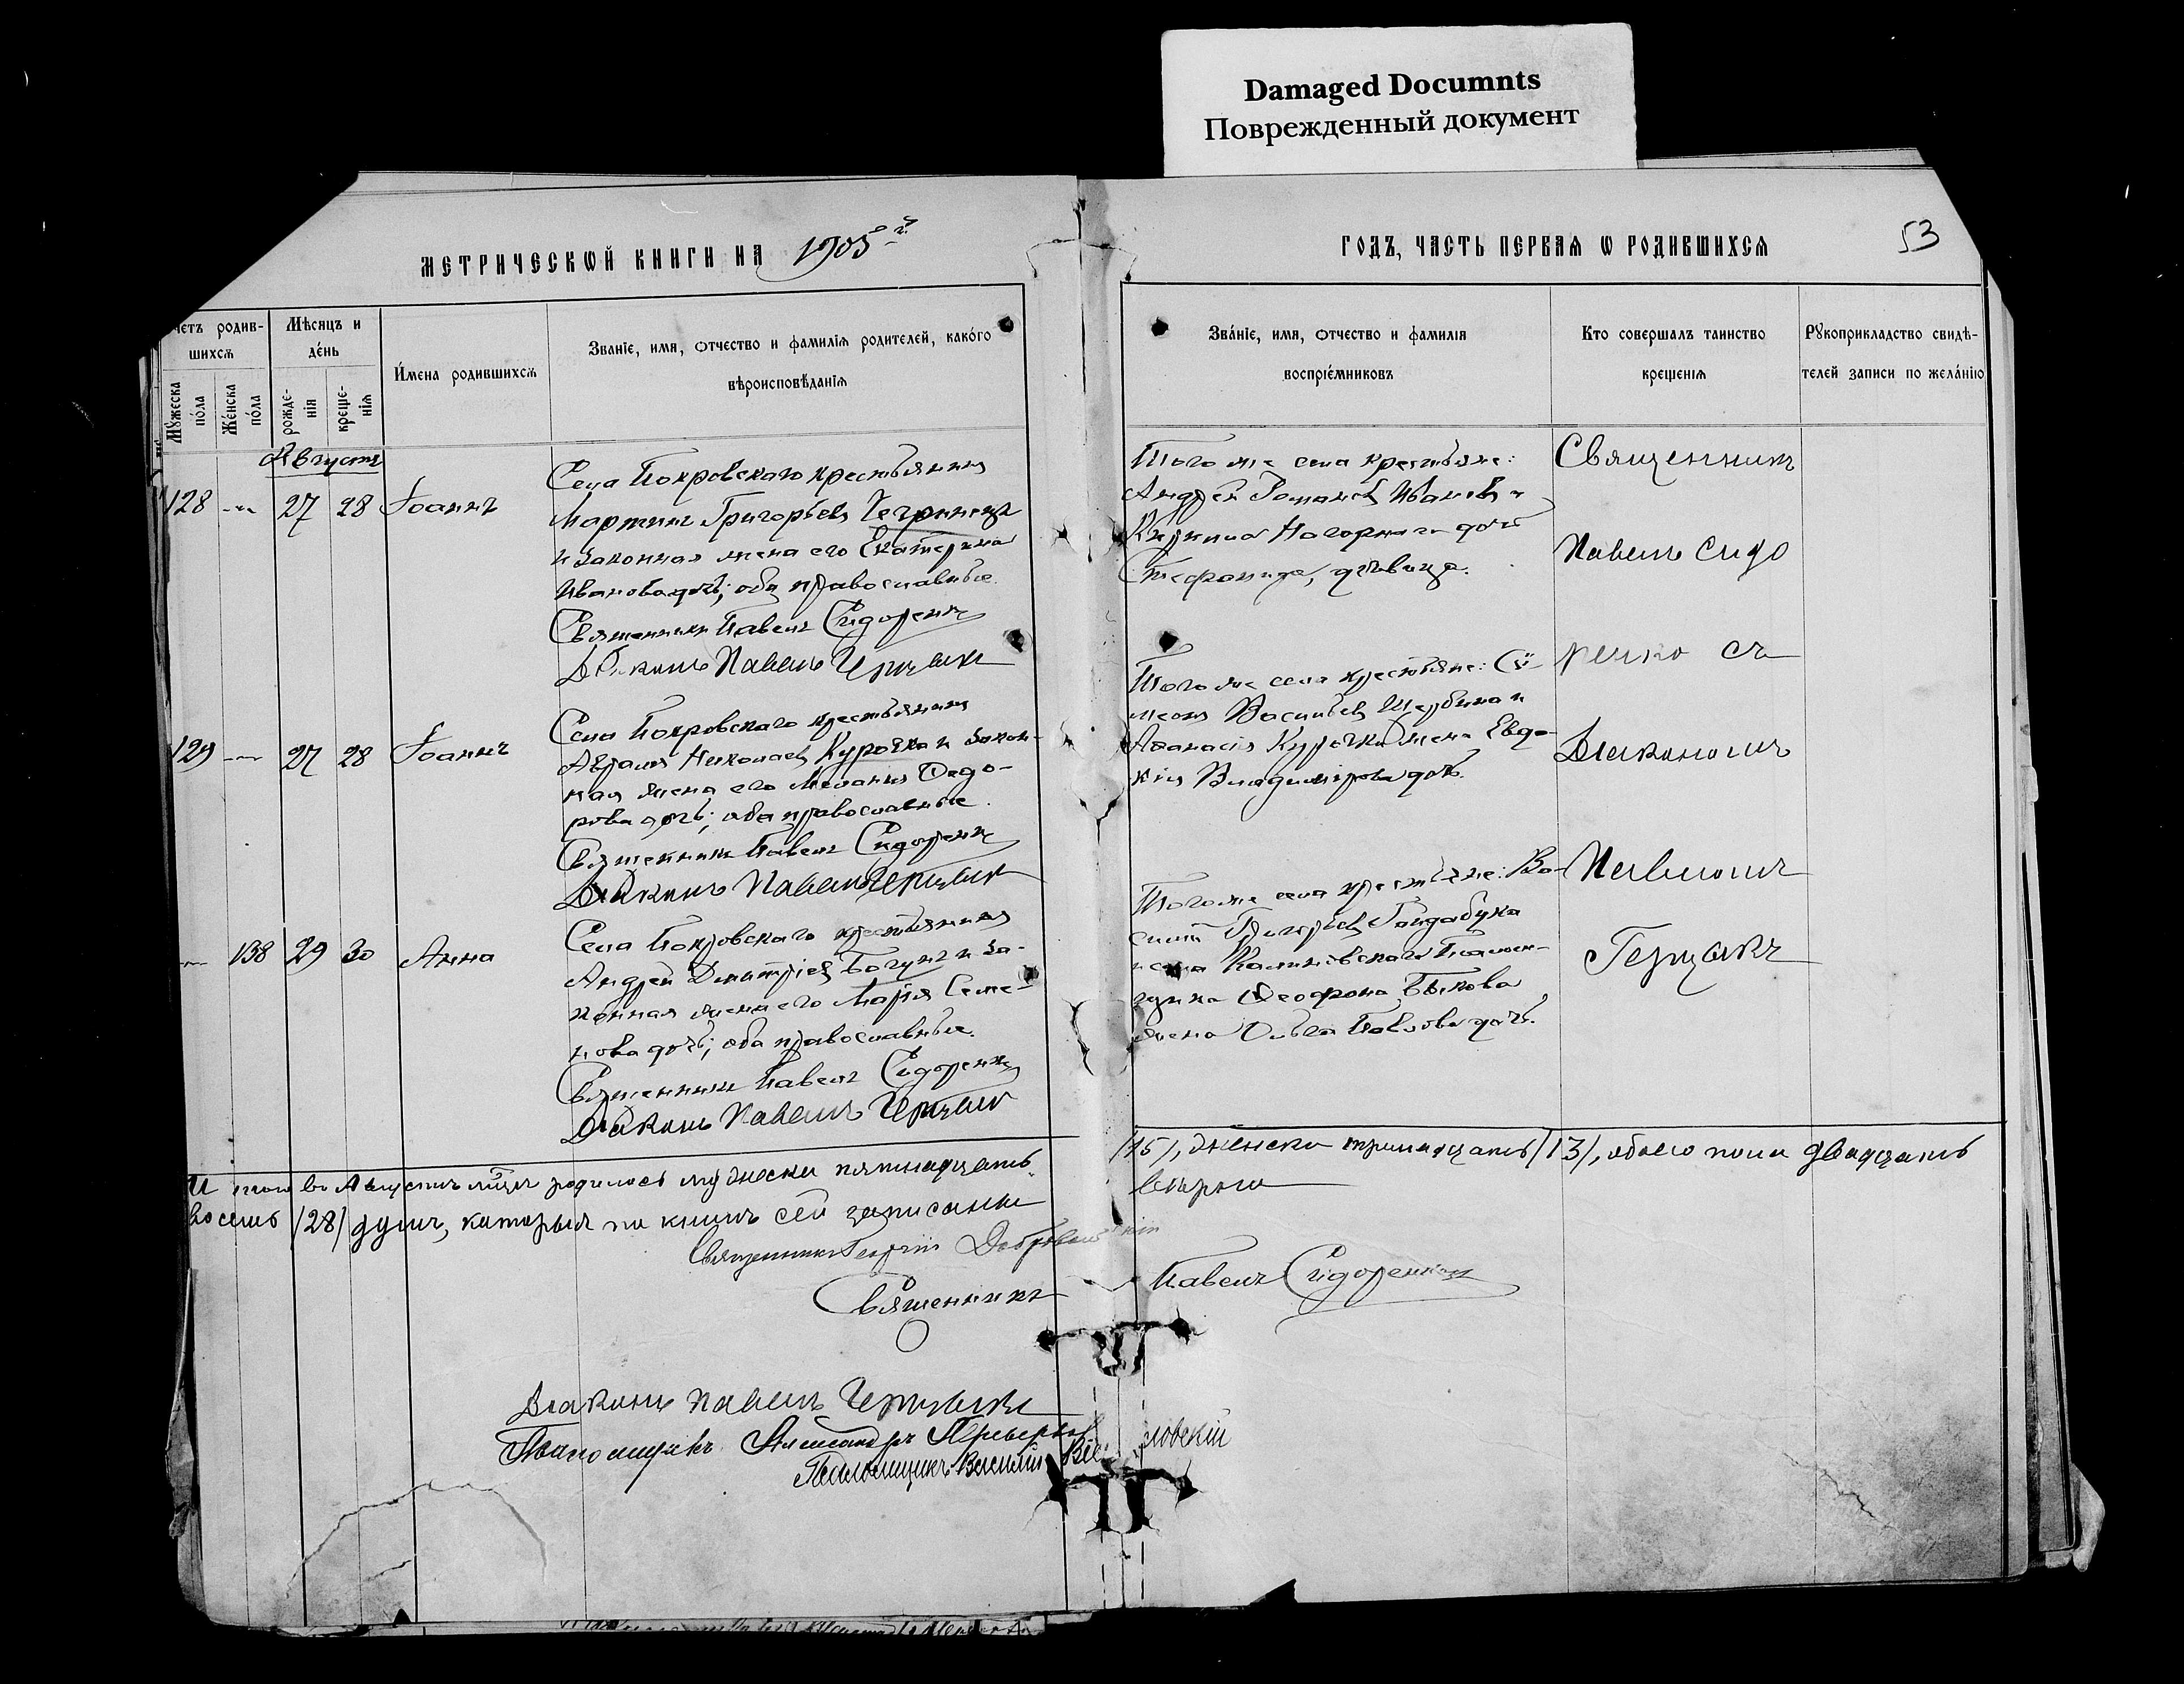 Damaged Documnts
Поврежденный документ
МЕТРИЧЕСКѠЙ КНИГИ НА 1905й
ГОДЪ, ЧАСТЬ ПЕРВАѦ Ѡ РОДИВШИХСѦ
53
четъ родив-
шихсѧ
Мꙋжеска пóла
Жéнска пóла
Мѣсяцъ и
дéнь
рожде-
нія
креще-
нія
И́мена родившихсѧ
Званіе, имя, отчество и фамиліѧ родителей, какóго
вѣроисповѣ́даніѧ
Звáніе, имя, отчество и фамилія
воспріéмниковъ
Кто совершалъ таинство
крещеніѧ
Рꙋкоприкладство свидѣ-
телей записи по желáнію
Августъ
128 -"- 27 28 Іоаннъ
Села Покровскаго крестьянинъ
Мартинъ Григорьевъ
и законная жена его Екатерина
Иванова дочь; оба православные.
Священникъ Павелъ Сидоренко
Діаконъ Павелъ
Того же села крестьяне:
Андрей Иановъ и
Кирилла Нагорнаго дочь
Стефанида, дѣвица.
Священникъ
Павелъ Сидо
ренко съ
Діакономъ
Павломъ
129 -"- 27 28 Іоаннъ
Села Покровскаго крестьянинъ
Николаевъ Курочка и закон-
ная жена его Меланія Ѳедо-
рова дочь; оба православные.
Священникъ Павелъ Сидоренко
Діаконъ Павелъ
Того же села крестьяне: Сѵ-
меонъ Васильевъ Щербина и
Аѳанасія Курочки жена Евдо-
кія Владимірова дочь.
-"- 138 29 30 Анна
Села Покровскаго крестьянинъ
Андрей Димитріевъ Богунъ и за-
конная жена его Марія Семе-
нова дочь; оба православные.
Священникъ Павелъ Сидоренко
Діаконъ Павелъ
Того же села крестьяне: Ва-
силій Григорьевъ
и села Калиновскаго Псалом-
щика Ѳеофана Быкова
жена Ольга Павлова дочь.
Итого въ Августѣ мѣсяцѣ родилось мужеска пятнадцать
/15/, женска тринадцать /13/, обоего пола двадцать
восемь /28/ душъ, которыя по книгѣ сей записаны
вѣрно
Священникъ Георгій
Священникъ Павелъ Сидоренко
Діаконъ Павелъ
Псаломщикъ Александръ
Псаломщикъ Василій